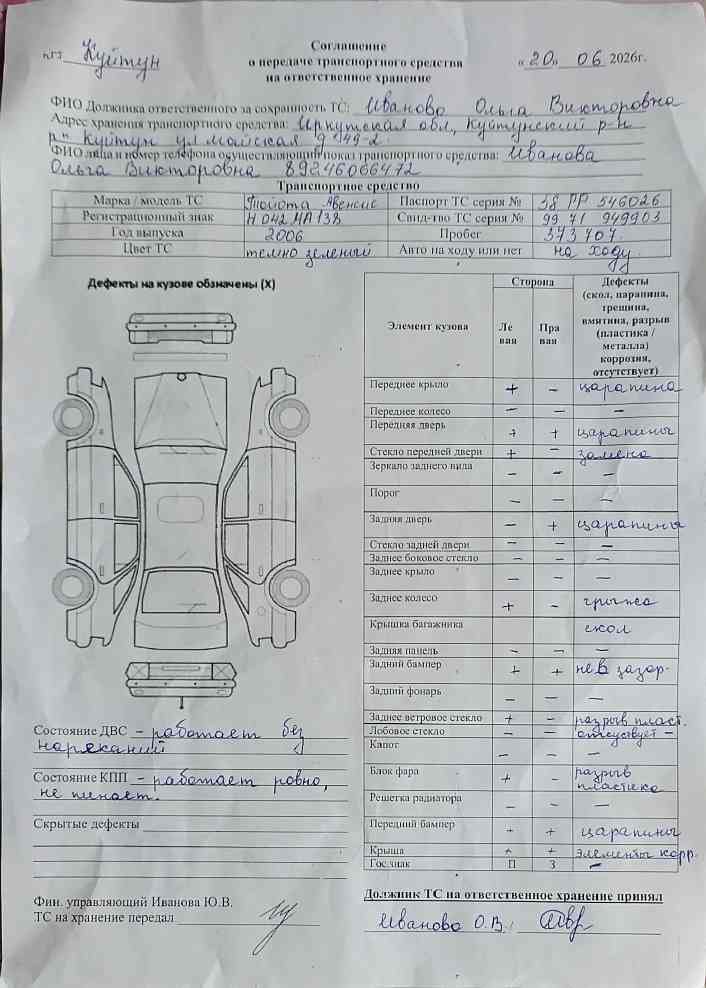 Соглашение
пгт Куйтун о передаче транспортного средства «20» 06 2026г.
на ответственное хранение
ФИО Должника ответственного за сохранность ТС: Иванова Ольга Викторовна
Адрес хранения транспортного средства: Иркутская обл, Куйтунский р-н
рп Куйтун ул Майская д 49-2
ФИО лица и номер телефона осуществляющий показ транспортного средства: Иванова
Ольга Викторовна 89246066472
Транспортное средство
Марка / модель ТС Тойота Авенсис Паспорт ТС серия № 38 РР 546026
Регистрационный знак Н042МА138 Свид-тво ТС серия № 99 71 949903
Год выпуска 2006 Пробег 373 707.
Цвет ТС темно зеленый Авто на ходу или нет на ходу.
Дефекты на кузове обозначены (Х)
Элемент кузова Сторона Дефекты
Ле Пра (скол, царапина,
вая вая трещина,
вмятина, разрыв
(пластика /
металла)
коррозия,
отсутствует)
Переднее крыло + - царапина
Переднее колесо - - -
Передняя дверь + + царапины
Стекло передней двери + - замена
Зеркало заднего вида - - -
Порог - - -
Задняя дверь - + царапины
Стекло задней двери - - -
Заднее боковое стекло - - -
Заднее крыло - - -
Заднее колесо + - грыжа
Крышка багажника скол
Задняя панель - - -
Задний бампер + + не в зазор-
Задний фонарь - - -
Заднее ветровое стекло + - разрыв пласт.
Лобовое стекло - - отсутствует -
Капот - - -
Блок фара + - разрыв
пластика
Решетка радиатора - - -
Передний бампер + + царапины
Крыша + + элементы корр.
Гос.знак П З -
Состояние ДВС - работает без
нареканий
Состояние КПП - работает ровно,
не пинает.
Скрытые дефекты
Фин. управляющий Иванова Ю.В.
ТС на хранение передал
Должник ТС на ответственное хранение принял
Иванова О.В.